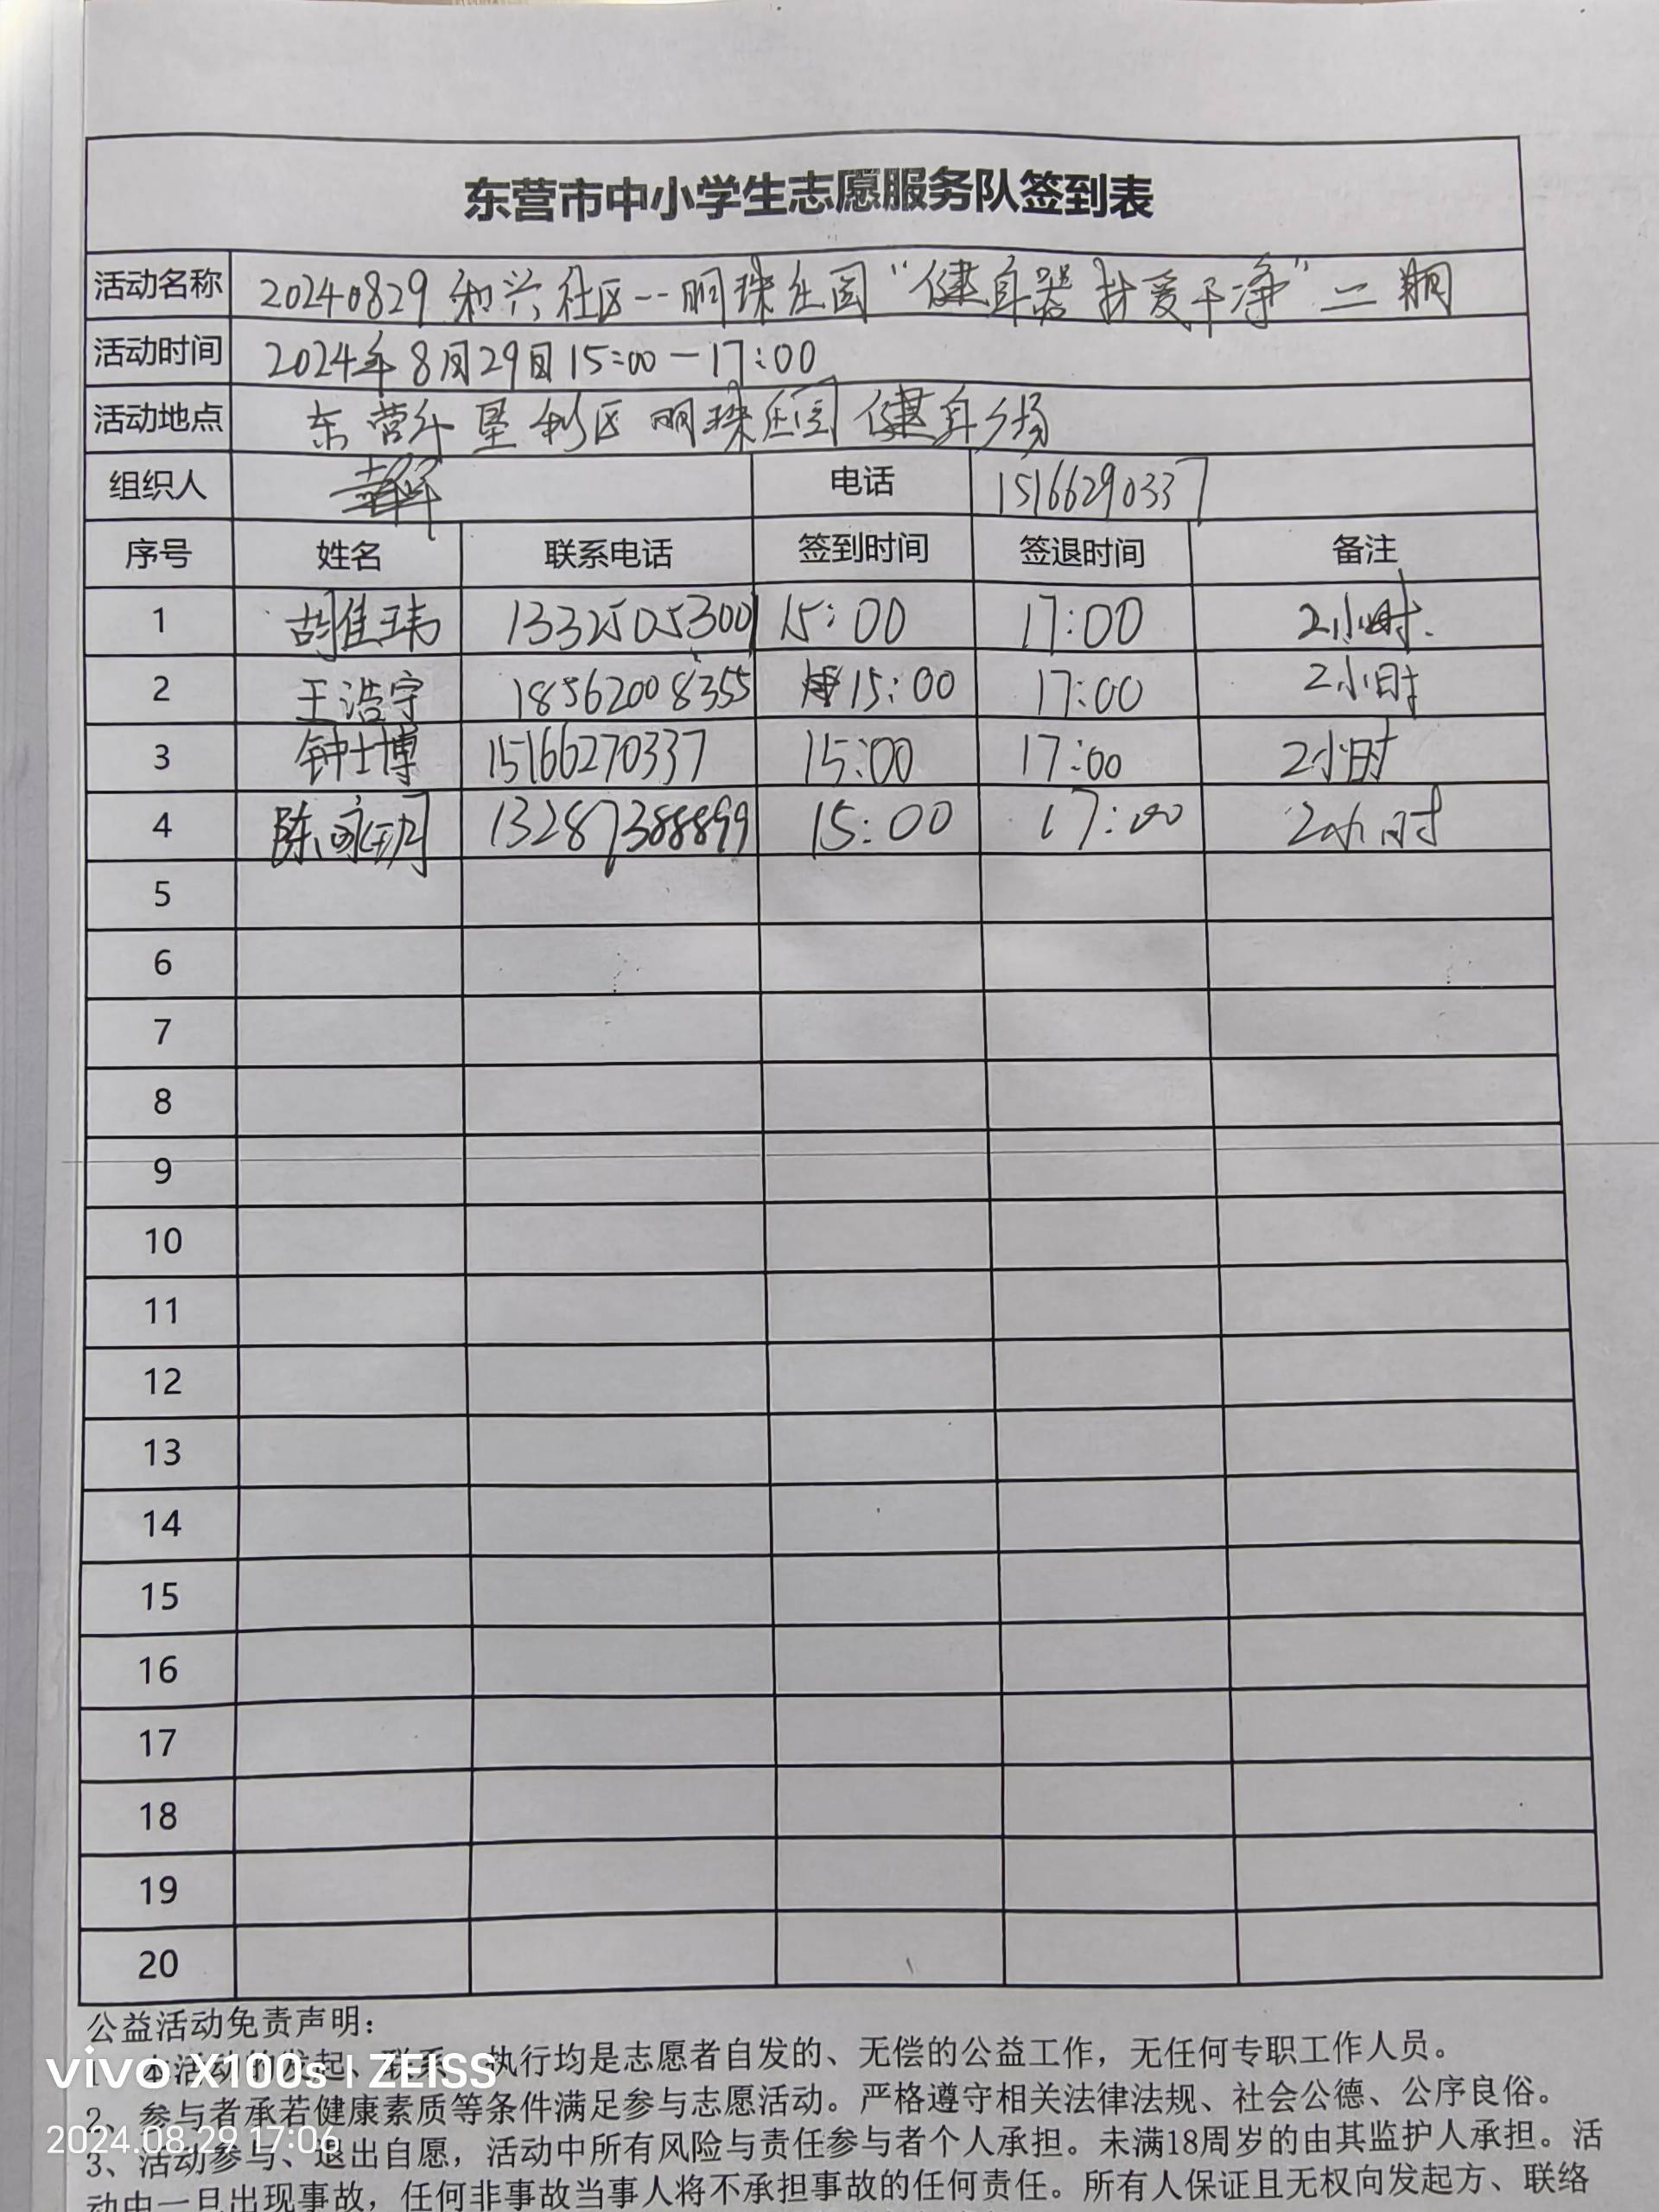 东营市中小学生志愿服务队签到表
活动名称 20240829 和兴社区--明珠庄园“健身器材爱干净”二期
活动时间 2024年8月29日15:00-17:00
活动地点 东营市垦利区明珠庄园健身广场
组织人 电话 15166290337
序号 姓名 联系电话 签到时间 签退时间 备注
1 胡佳玮 13325053001 15:00 17:00 2小时.
2 王浩宇 18562008355 15:00 17:00 2小时
3 钟士博 15166270337 15:00 17:00 2小时
4 陈 13287388899 15:00 17:00 2小时
5
6
7
8
9
10
11
12
13
14
15
16
17
18
19
20
公益活动免责声明：
本活动的发起、联系、执行均是志愿者自发的、无偿的公益工作，无任何专职工作人员。
vivo X100s | ZEISS
2、参与者承若健康素质等条件满足参与志愿活动。严格遵守相关法律法规、社会公德、公序良俗。
2024.08.29 17:06
3、活动参与、退出自愿，活动中所有风险与责任参与者个人承担。未满18周岁的由其监护人承担。活
动中一旦出现事故，任何非事故当事人将不承担事故的任何责任。所有人保证且无权向发起方、联络